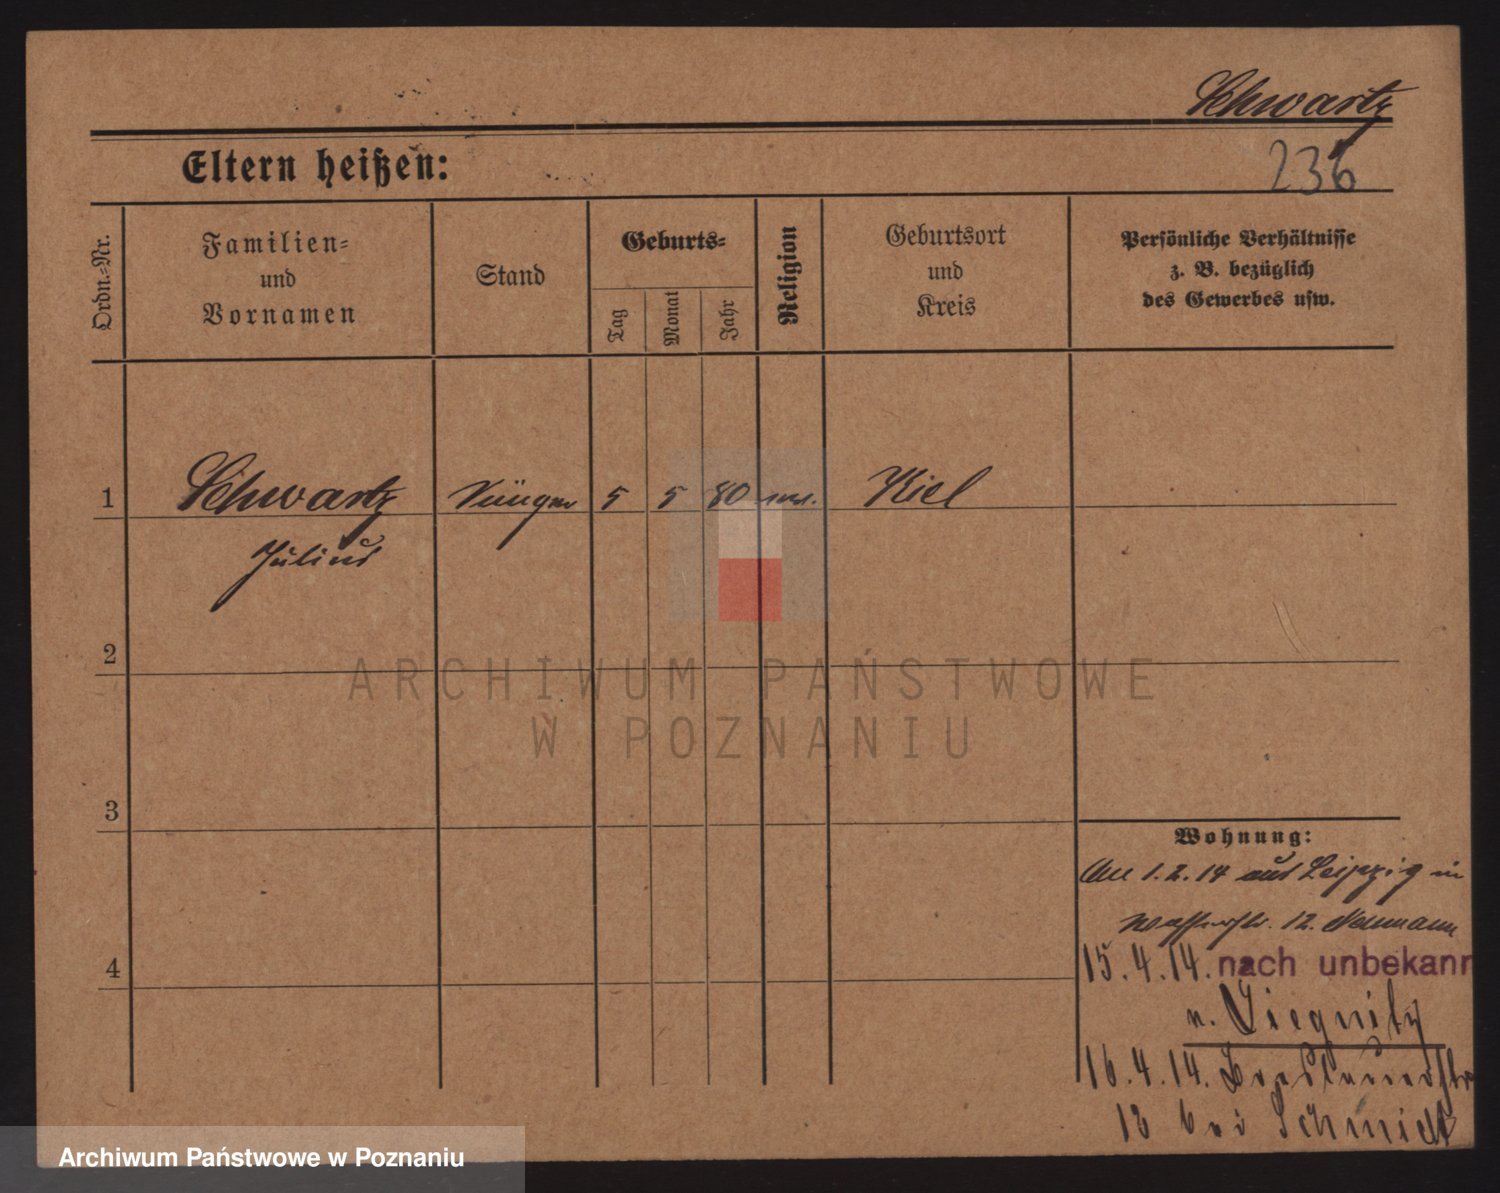 Schwartz
236
Eltern heißen:
Ordn.-Nr.
Familien-
und
Vornamen
Stand
Geburts-
Tag
Monat
Jahr
Religion
Geburtsort
und
Kreis
Persönliche Verhältnisse
z. B. bezüglich
des Gewerbes usw.
1 Schwartz 5 5 80 Kiel
Julius
2
ARCHIWUM PAŃSTWOWE
W POZNANIU
3
Wohnung:
An 1.2.14 aus Leipzig in
Wasserstr. 12. Neumann
15.4.14. nach unbekann
4
n. Liegnitz
16.4.14. Breslauerstr
13 bei Schmidt
Archiwum Państwowe w Poznaniu